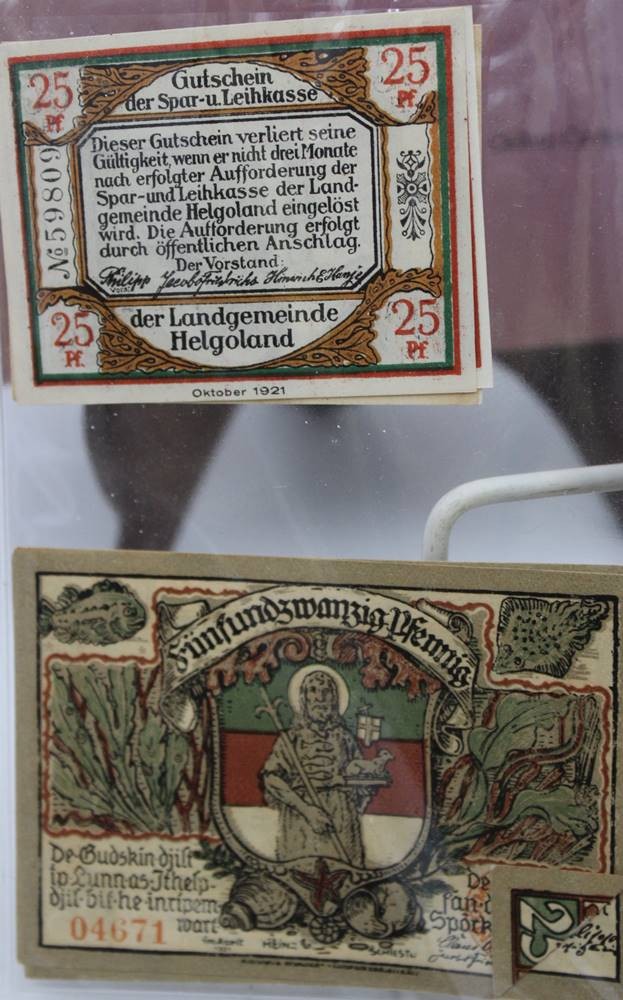 25 Pf
Gutschein
der Spar-u. Leihkasse
25 Pf.
№ 59809
Dieser Gutschein verliert seine
Gültigkeit, wenn er nicht drei Monate
nach erfolgter Aufforderung der
Spar- und Leihkasse der Land-
gemeinde Helgoland eingelöst
wird. Die Aufforderung erfolgt
durch öffentlichen Anschlag.
Der Vorstand:
Philipp Jacob Friedrichs Hinrich E. Hansje
25 Pf.
der Landgemeinde
Helgoland
25 Pf
Oktober 1921
Fünfundzwanzig Pfennig
De Gudskin djilt
ip Lunn as Ithelp-
djil bit he inripem
wart
04671
De
fan d
Spörk
HEINZ
SCHIESTL
25